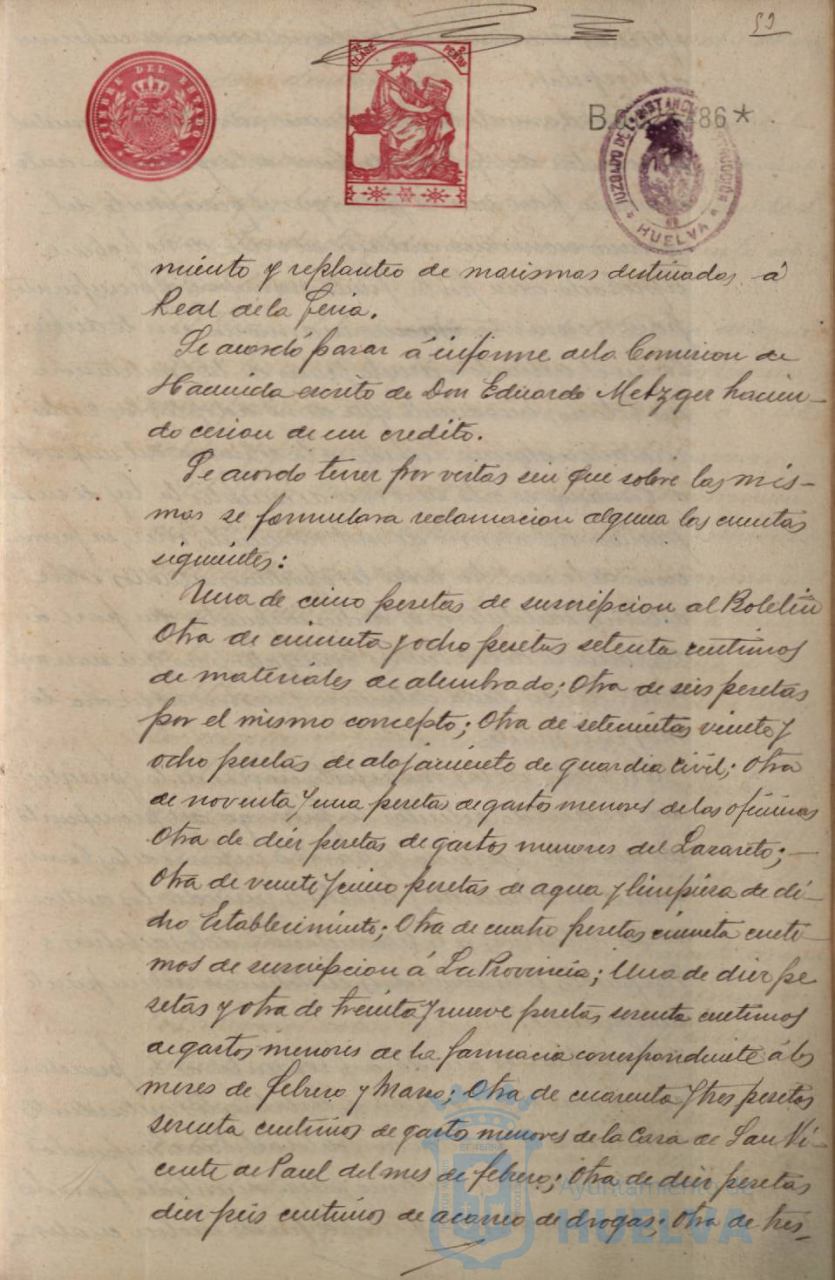 59
TIMBRE DEL ESTADO
CLASE
2 PESETAS
JUZGADO DE 1ª INSTANCIA
HUELVA
miento y replanteo de marismas destinadas á
Real de la feria.
Se acordó pasar á informe de la Comision de
Hacienda escrito de Don Eduardo Metzger hacien-
do cesion de un credito.
Se acordo tener por vistas sin que sobre las mis-
mas se formulara reclamacion alguna las cuentas
siguientes:
Una de cinco pesetas de suscripcion al Boletin
Otra de cincuenta y ocho pesetas setenta centimos
de materiales de alumbrado; Otra de seis pesetas
por el mismo concepto; Otra de setecientas veinte y
ocho pesetas de alojamiento de guardia civil; Otra
de noventa y una pesetas de gastos menores de las oficinas
Otra de diez pesetas de gastos menores del Lazareto;
Otra de veinte y cinco pesetas de agua y limpieza de di-
cho Establecimiento; Otra de cuatro pesetas cincuenta centi-
mos de suscripcion á La Provincia; Una de diez pe
setas y otra de treinta y nueve pesetas sesenta centimos
de gastos menores de la farmacia correspondiente á los
meses de febrero y Marzo; Otra de cuarenta y tres pesetas
sesenta centimos de gastos menores de la Casa de San Vi-
cente de Paul del mes de febrero; Otra de diez pesetas
diez seis centimos de acarreo de drogas; Otra de tres-
Ayuntamiento de
HUELVA